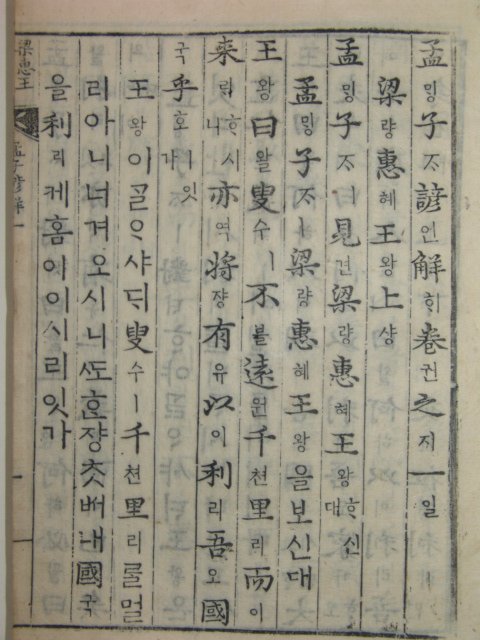 孟밍子ᄌᆞ諺언解ᄒᆡ卷권之지一일
梁량惠혜王왕上샹
孟밍子ᄌᆞㅣ見견梁량惠혜王왕ᄒᆞ신대
孟밍子ᄌᆞㅣ梁량惠혜王왕을보신대
王왕曰왈叟수ㅣ不블遠원千쳔里리而이
来ᄅᆡᄒᆞ시니亦역將쟝有유以이利리吾오國
국乎호ㅣ잇가
王왕이ᄀᆞᆯᄋᆞ샤ᄃᆡ叟수ㅣ千쳔里리ᄅᆞᆯ멀
리아니너겨오시니ᄯᅩᄒᆞᆫ쟝ᄎᆞᆺᄡᅥ내國국
을利리케홈이이시리잇가
梁惠王
孟子諺解 一